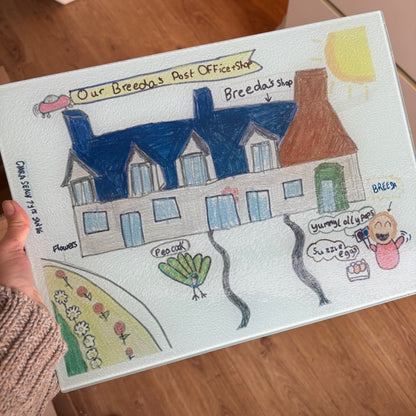 Our Breeda's Post Office+Shop
Breeda's Shop
BREEDA
Yummy Lollypops
Fuzzie
eggs
Peacock
Flowers